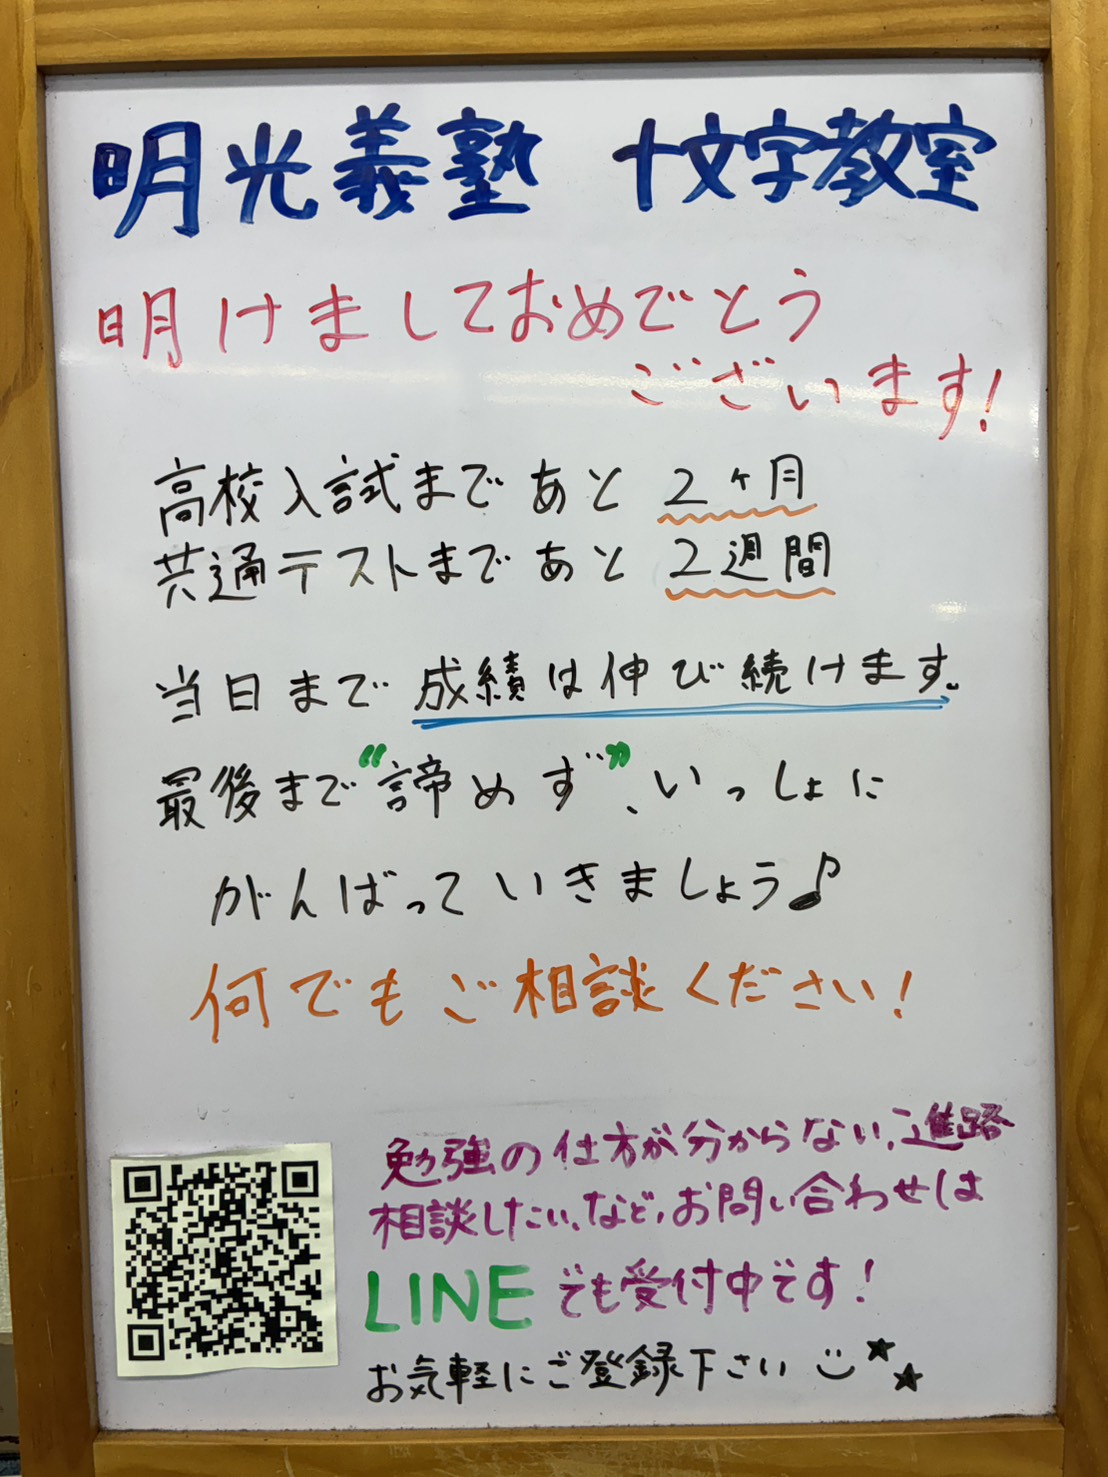 明光義塾 十文字教室
明けましておめでとう
ございます!
高校入試まで あと 2ヶ月
共通テストまで あと 2週間
当日まで 成績は伸び続けます。
最後まで“諦めず”、いっしょに
がんばっていきましょう♪
何でもご相談ください!
勉強の仕方が分からない、進路
相談したい、など、お問い合わせは
LINEでも受付中です!
お気軽にご登録下さい